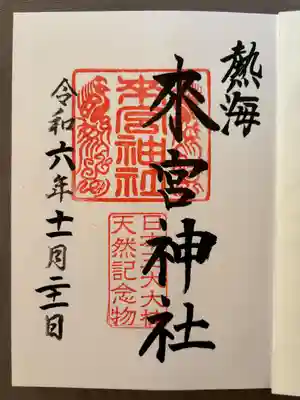 熱海
來宮神社
來宮神社
日本三大大楠
天然記念物
令和六年十一月